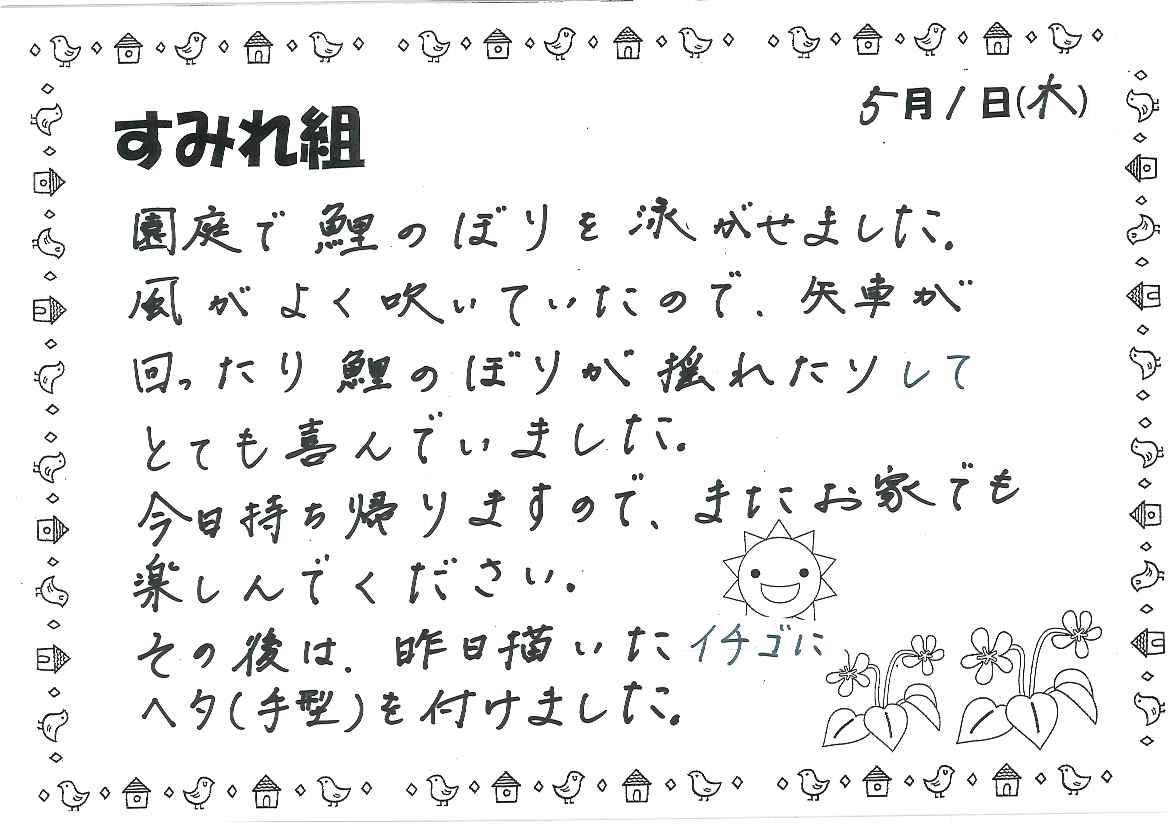 5月1日(木)
すみれ組
園庭で鯉のぼりを泳がせました。
風がよく吹いていたので、矢車が
回ったり鯉のぼりが揺れたりして
とても喜んでいました。
今日持ち帰りますので、またお家でも
楽しんでください。
その後は、昨日描いたイチゴに
ヘタ(手型)を付けました。